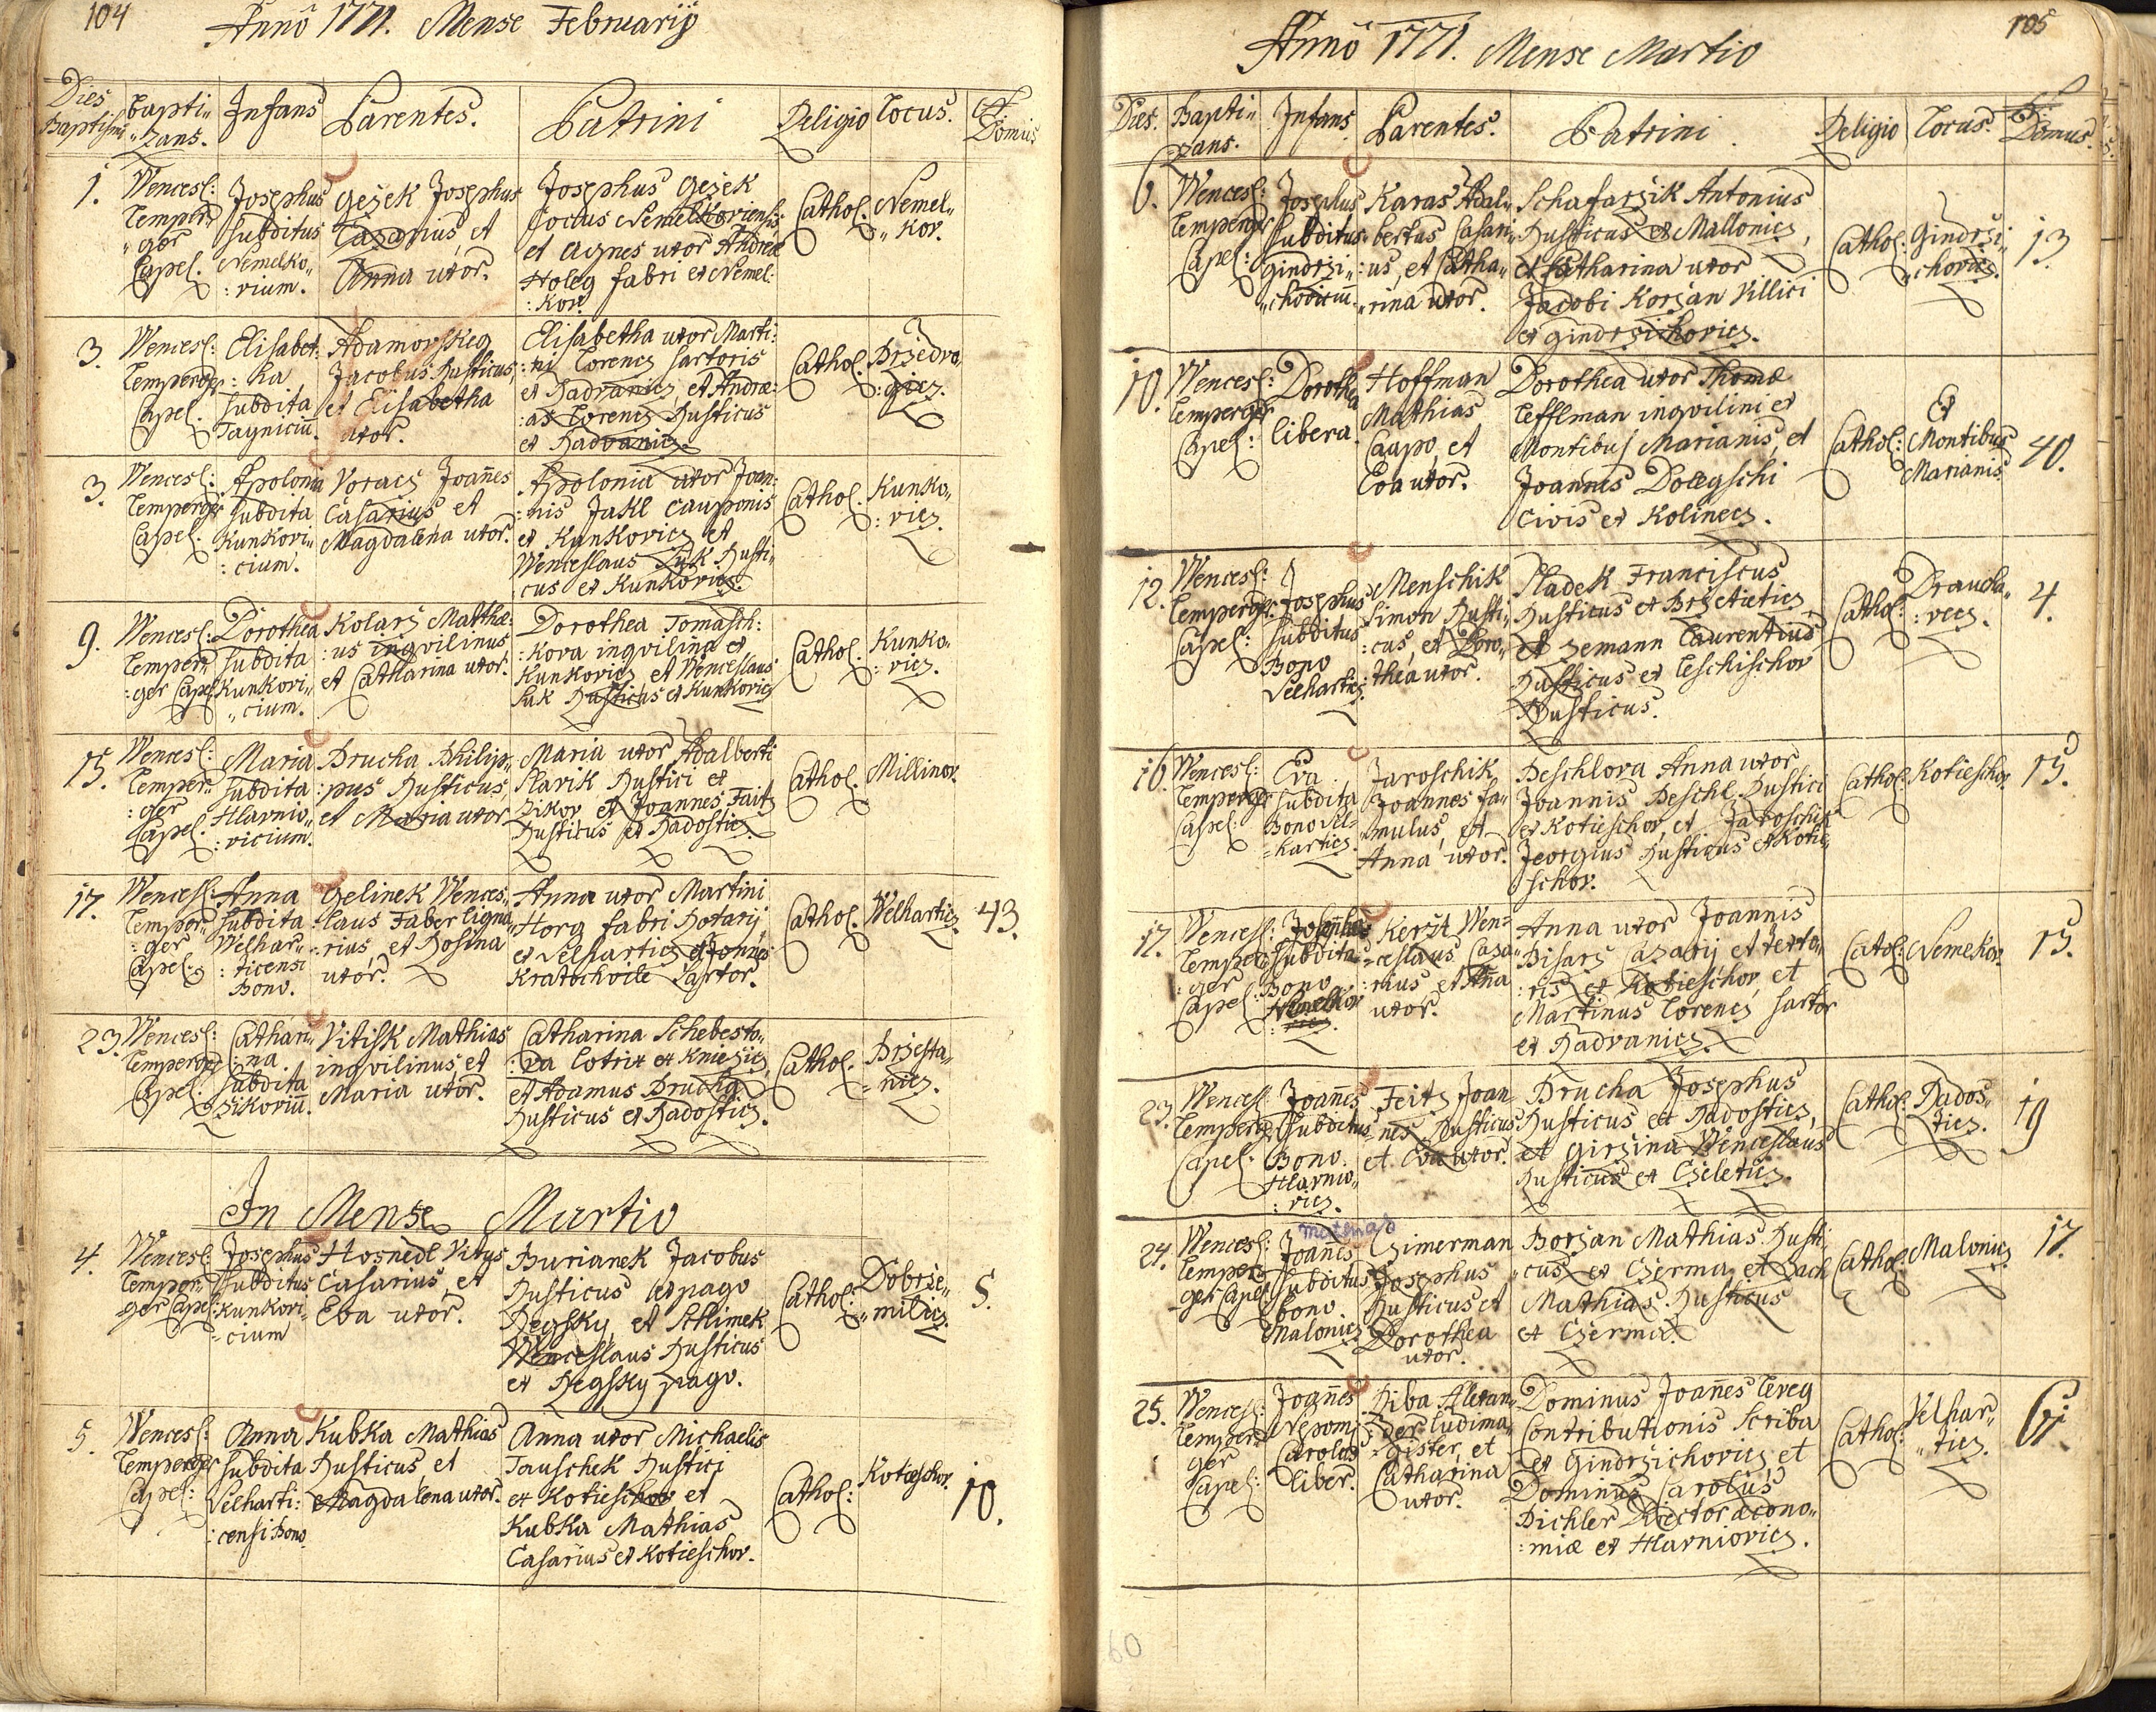 104
Anno 1771. Mense Februarij
Dies Baptismi
Bapti-
zans.
Infans
Parentes.
Patrini
Religio
Locus.
N. Domus
1.
Wencesl:
Temper
ger
Capel.
Josephus
subditus
Nemelko-
rium.
Gejek Josephus
Casarius, et
Anna uxor.
Josephus Gejek
Coctus Nemelkoviensis
et Agnes uxor Andreæ
Holeg fabri ex Nemel:
kov.
Cathol.
Nemel-
kov.
3.
Wencesl:
Temperger
Capel.
Elisabet:
ha
subdita
Tagniciū.
Adamovskeg
Jacobus Rusticus,
et Elisabetha
uxor.
Elisabetha uxor Marti:
ni Lorencz sartoris
ex Radvanicz, et Andræ:
as Lorencz Rusticus
ex Radvanicz.
Cathol.
Przedva-
gicz.
3.
Wencesl:
Temperger
Capel.
Apolonia
subdita
Kunkovi-
cium.
Voracz Joañes
Casarius et
Magdalena uxor.
Apolonia uxor Joan:
nis Jakl cauponis
ex Kunkovicz et
Wenceslaus Suk Rusti:
cus ex Kunkovicz
Cathol.
Kunko-
vicz.
9.
Wencesl:
Temper-
ger Capel
Dorothea
subdita
Kunkovi-
cium.
Kolarz Matthæ:
us inqvilinus
et Catharina uxor.
Dorothea Tomasch:
kova inqvilina ex
Kunkovicz et Wenceslaus
Suk Rusticus ex Kunkovicz
Cathol.
Kunko-
vicz.
15.
Wencesl:
Temper-
ger
Capel.
Maria
subdita
Hlavnio-
vicium.
Brucha Philip-
pus Rusticus,
et Maria uxor
Maria uxor Adalberti
Slavik Rustici ex
Zikov et Joannes Fait
Rusticus ex Radosticz
Cathol.
Millinov.
17.
Wencesl:
Temper-
ger
Capel.
Anna
subdita
Welhar-
ticensi
Bono.
Gelinek Wences-
laus Faber ligna-
rius et Rosina
uxor.
Anna uxor Martini
Horg fabri Rotarij
ex Velhartiez et Joañes
Kratochvile Sartor.
Cathol.
Welharticz.
43.
23.
Wencesl:
Temperger
Capel.
Cathari-
na
subdita
Zikoviū.
Vitisk Mathias
inqvilinus, et
Maria uxor.
Catharina Schebesto-
va Lotrix ex Kniezicz
et Adamus Brucha
Rusticus ex Radosticz.
Cathol.
Brzesta-
nicz.
In Mense Martio
4.
Wencesl:
Temper-
ger Capel:
Josephus
subditus
Kunkovi-
cium
Hosnedl Vitus
Casarius, et
Eva uxor.
Burianek Jacobus
Rusticus ex pago
Regsky, et Schimek
Wenceslaus Rusticus
ex Regsky pago.
Cathol:
Dobrze-
milicz.
5.
5.
Wencesl:
Temperger
Capel:
Anna
subdita
Velharti:
censi Bono
Kubka Mathias
Rusticus, et
Magdalena uxor.
Anna uxor Michaelis
Tauschek Rustici
ex Kotieschov et
Kubka Mathias
Casarius ex Kotieschov.
Cathol:
Kotieschov.
10.
105
Anno 1771. Mense Martio
Dies.
Bapti-
zans.
Infans
Parentes.
Patrini.
Religio
Locus.
N. Domus.
6.
Wencesl:
Temperger
Capel:
Josephus
subditus
Gindrzi-
choviciū.
Karas Adal-
bertus Casari-
us, et Catha-
rina uxor.
Schafarzik Antonius
Rusticus ex Mallonicz,
et Catharina uxor
Jacobi Korzan Villici
ex Gindrzichovicz.
Cathol:
Gindrzi-
chovicz.
13.
10.
Wencesl:
Temperger
Capel:
Dorothea
libera.
Hoffman
Mathias
Caupo, et
Eva uxor.
Dorothea uxor Thomæ
Lefflman inqvilini ex
Montibus Marianis, et
Joannes Dolegschi
Civis ex Kolinecz.
Cathol:
Ex
Montibus
Marianis
40.
12.
Wencesl:
Temperger
Capel:
Josephus
subditus
Bono
Velharticz.
Menschik
Simon Rusti-
cus, et Doro-
thea uxor.
Sladek Franciscus
Rusticus ex Brzetieticz
et Zemann Laurentius
Rusticus ex Leschischov
Rusticus.
Cathol:
Draucha-
vecz.
4.
16.
Wencesl:
Temperger
Capel:
Eva
subdita
Bono Vel-
harticz.
Jaroschik
Joannes fa-
mulus, et
Anna uxor.
Peschlova Anna uxor
Joannis Peschl Rustici
ex Kotieschov, et Jaroschik
Jeorgius Rusticus ex Kotie-
schov.
Cathol.
Kotieschov.
15.
17.
Wencesl:
Temper-
ger
Capel:
Josepha
subdita
Bono
Nemelkov
Kerzit Wen-
ceslaus Casa-
rius et Aña
uxor.
Anna uxor Joannis
Pisarz Casarij et texto-
ris ex Kotieschov, et
Martinus Lorencz sartor
ex Radvanicz.
Cathol:
Nemelkov.
15.
23.
Wencesl
Temperg:
Capel.
Joañes
subditus
Bono
Hlavnio-
vicz.
Feitz Joan
nes Rusticus
et Eva uxor.
Brucha Josephus
Rusticus ex Radosticz,
et Girzina Wenceslaus
Rusticus ex Czeleticz.
Cathol:
Rados-
ticz.
19
24.
Wencesl:
Temper-
ger Capel
Mathias
Joañes
subditus
bono
Malonicz
Czimerman
Josephus
Rusticus et
Dorothea
uxor.
Borzan Mathias Rusti-
cus ex Czerma, et Bach
Mathias Rusticus
ex Czerma.
Cathol:
Malonicz
17.
25.
Wencesl:
Temper-
ger
Capel:
Joañes
Nepom:
Carolus
liber.
Riba Alexan-
der ludima-
gister, et
Catharina
uxor.
Dominus Joañes Cereg
Contributionis Scriba
ex Gindrzichovicz, et
Dominus Carolus
Pichler Director œcono-
miæ ex Hlavniovicz.
Cathol:
Velhar-
ticz
61.
60